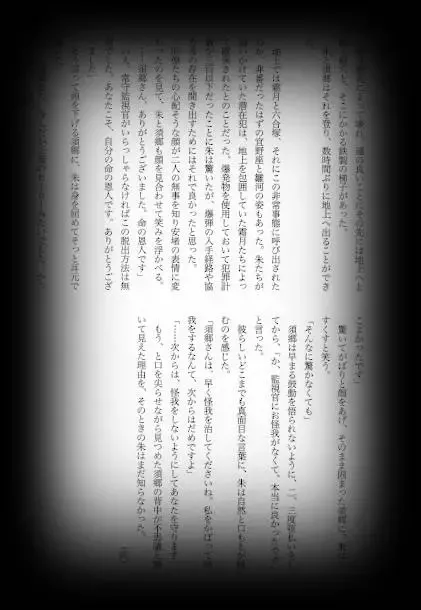 壊れ、運の良い
その先には地上へと
も、そこにかかる鉄製の梯があった。
朱と須郷はそれを登り、数時間ぶりに地上へ出ることができ
地上では霜月と六合塚、それにこの非常事態に呼び出された
か、非番だったはずの宜野座と雛河の姿もあった。朱たちが
追いかけていた潜在犯は、地上を包囲していた霜月たちによっ
て確保されたとのことだった。爆発物を使用しておいて犯罪計
以下だったことに朱は驚いたが、爆弾の入手経路や協
の存在を聞き出すためにはそれで良かったと思った。
同僚たちの心配そうな顔が二人の無事を知り安堵の表情に変
ったのを見て、朱と須郷も顔を見合わせて笑みを浮かべる。
「須郷さん、ありがとうございました。命の恩人です」
も、常守監視官がいらっしゃらなければこの脱出方法は無
でした。あなたこそ、自分の命の恩人です。ありがとうござ
ました」
って頭を下げる須郷に、朱は身を屈めてそっと耳元で
こよかったです」
驚いてがばりと顔をあげ、そのまま固まった須郷に、朱は
すくすと笑う。
「そんなに驚かなくても」
須郷は早まる鼓動を悟られないように、二、三度咳払いをし
てから、「か、監視官にお怪我がなくて、本当に良かったです」
と言った。
彼らしいどこまでも真面目な言葉に、朱は自然と口もとが緩
むのを感じた。
「須郷さんは、早く怪我を治してくださいね。私をかばって怪
我をするなんて、次からはだめですよ」
「……次からは、怪我をしないようにしてあなたを守ります」
もう、と口を尖らせながら見つめた須郷の背中が不思議と
いて見えた理由を、そのときの朱はまだ知らなかった。